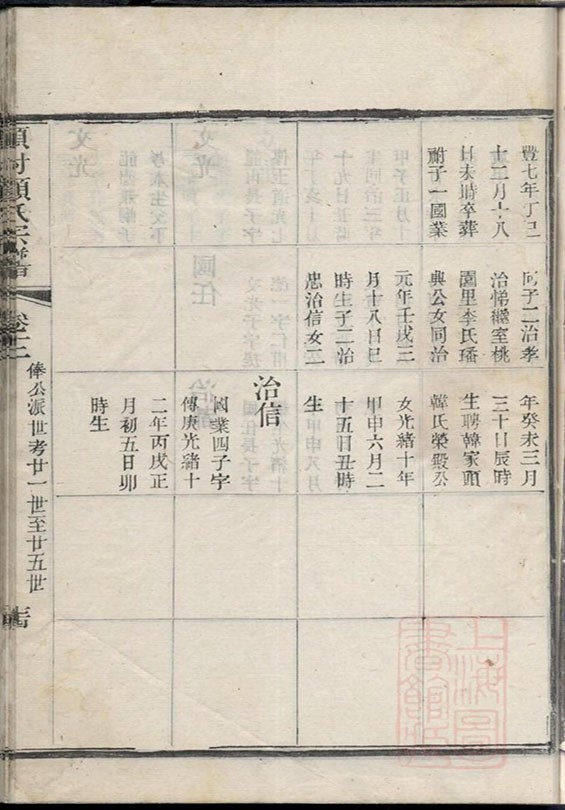 豐七年丁巳
十二月十八
日未時卒葬
子一國業
同子二治孝
治悌繼室桃
園里李氏璠
與公女同治
元年壬戌三
月十八日巳
時生子二治
忠治信女二
年癸未三月
三十日辰時
生聘韓家頭
韓氏榮殿公
女光緒十年
甲申六月二
十五日丑時
生
治信
國業四子字
傳庚光緒十
二年丙戌正
月初五日卯
時生
顧氏宗譜
卷十二
俸公派世考廿一世至廿五世
上海圖書館藏